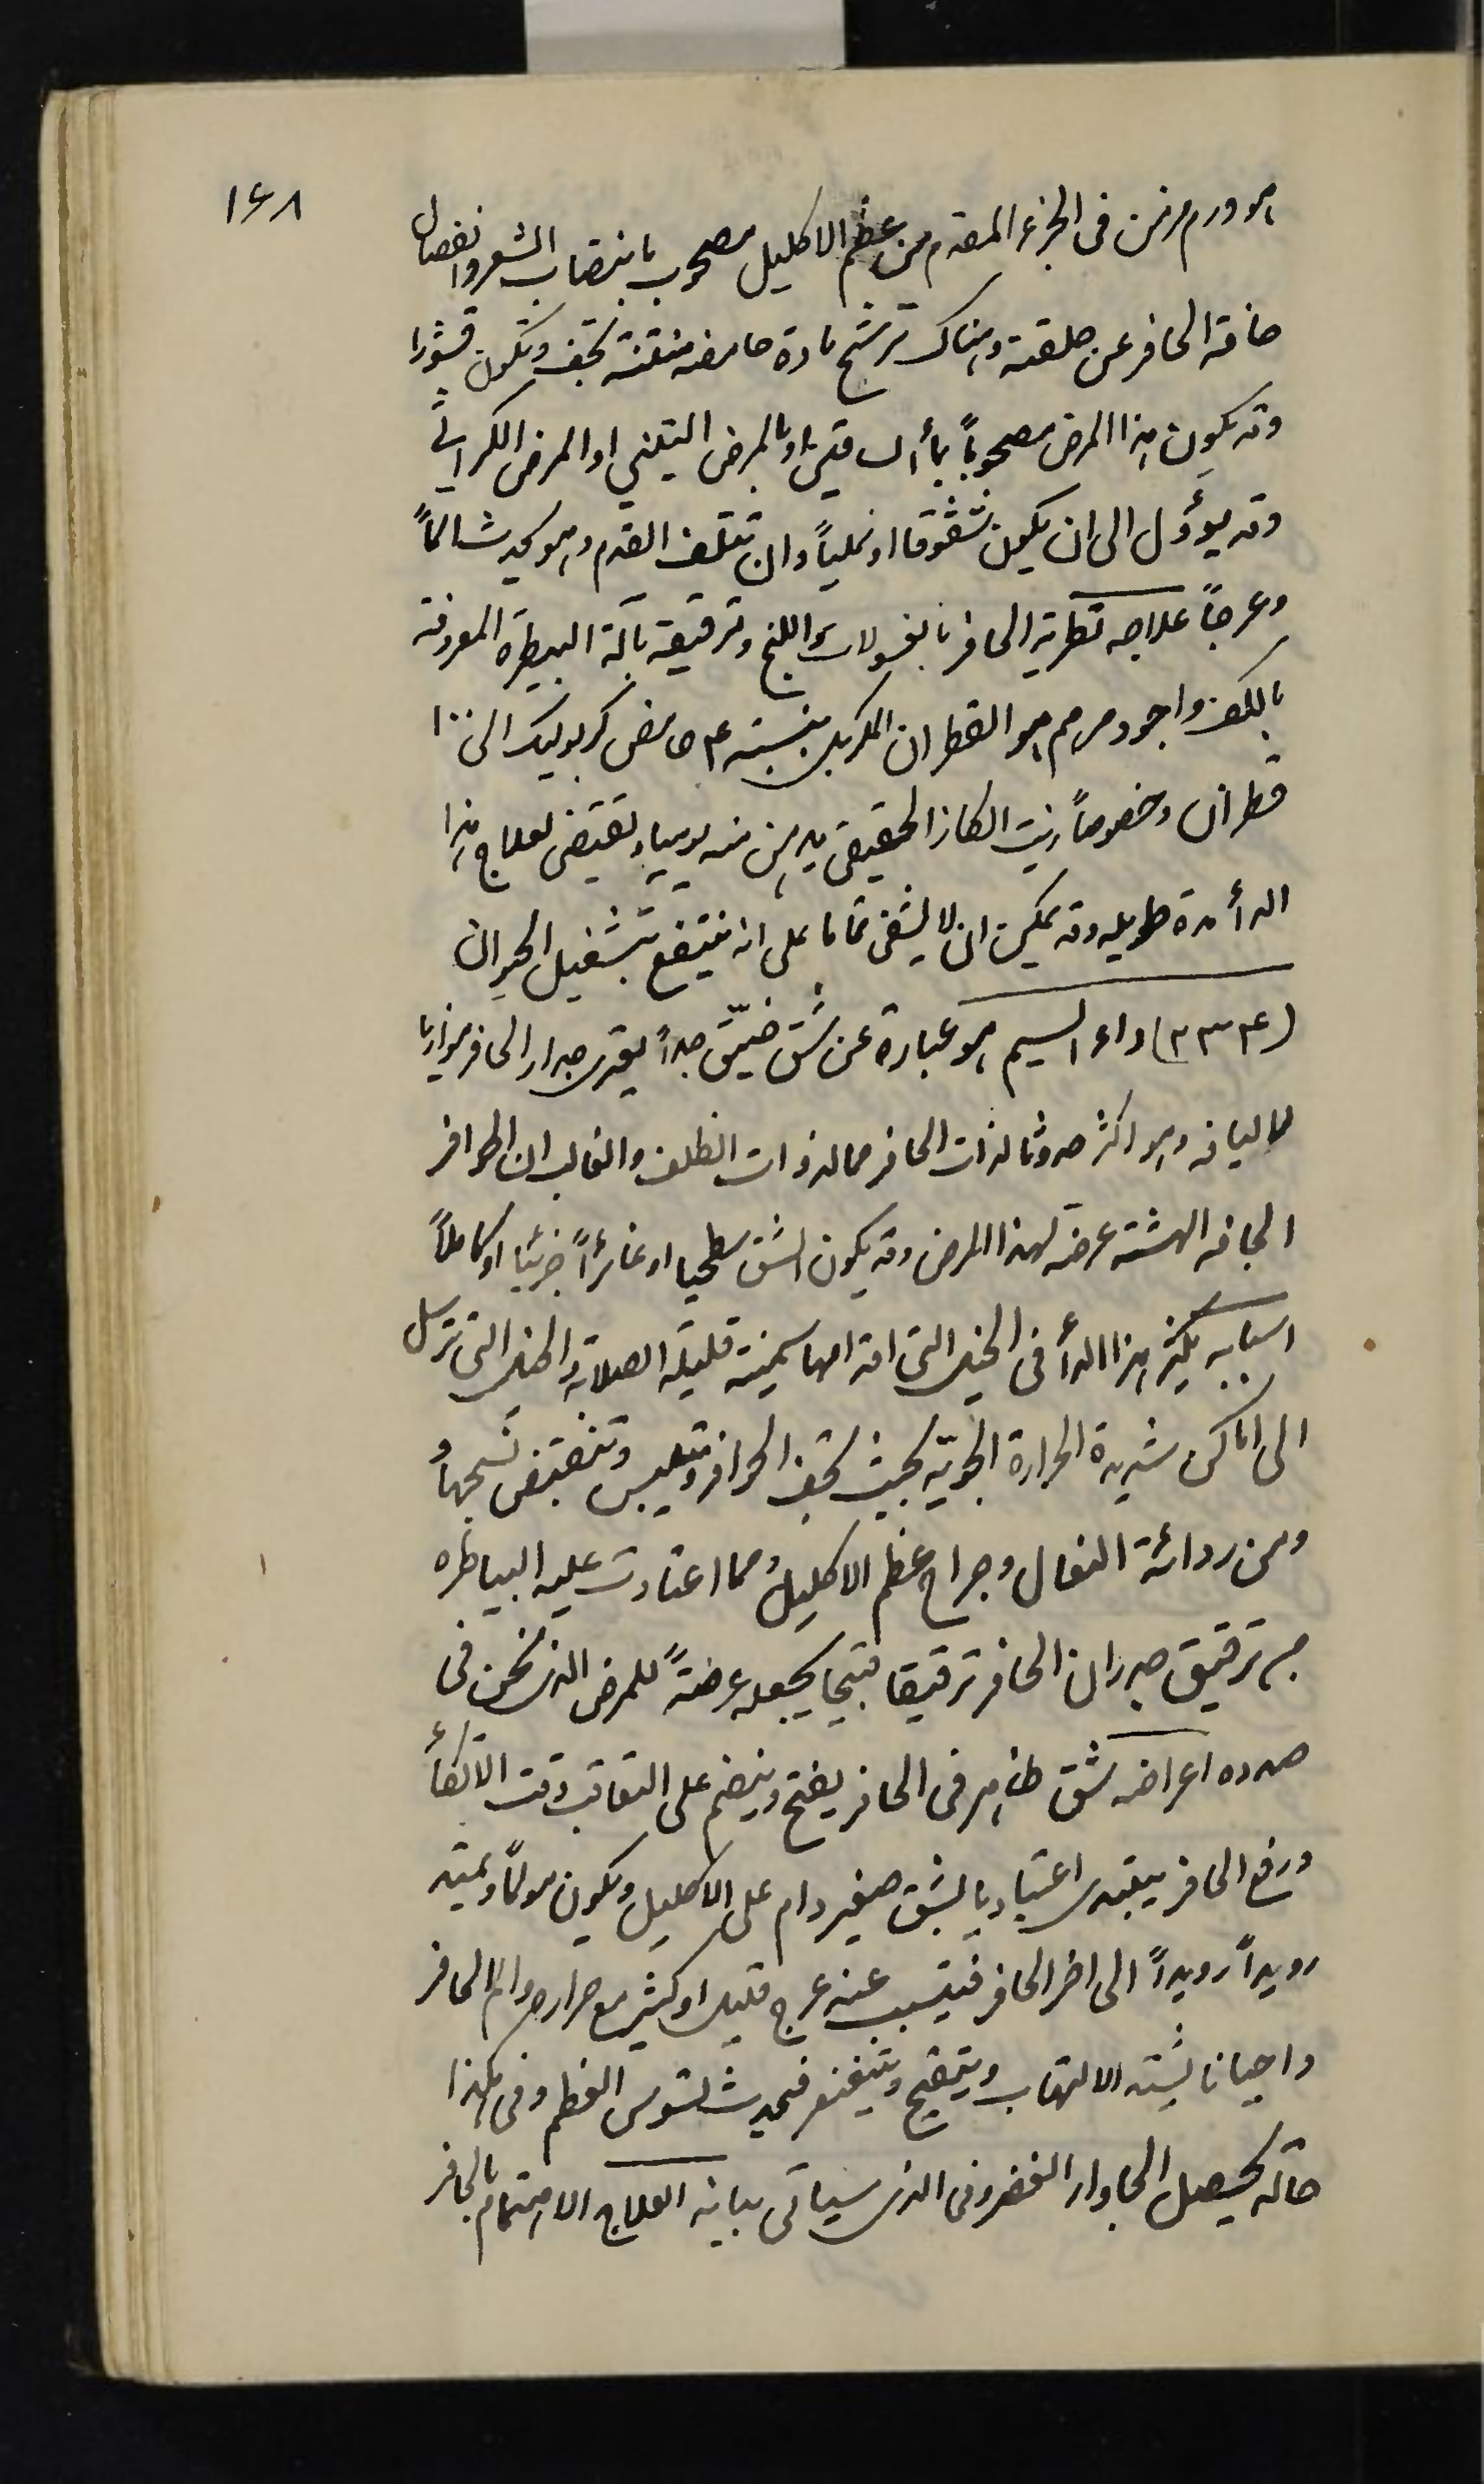 ١٤٨
هو ورم مزمن فى الجزء المقدم من عظم الاكليل مصحوب بانتصاب الشعر وانفصال
حافة الحافر عن حلقته وهناك ترشح مادة حامضه منتنة تجف وتكون قشورا
وقد يكون هذا المرض مصحوباً بدأ الساقين او بالمرض التيني او المرض الكراثي
وقد يؤول الى ان يكون شقوقا او نملياً وان تتلف القدم وهو يحدث الماً
وعرجاً علاجه تطرية الحافر بالغسولات واللبخ وترقيقه بآلة البيطره المعروفة
واجود مرهم هو القطران المكربل بنسبة ٤ حامض كربوليك الى ١٠٠
قطران وخصوصاً زيت الكاز الحقيقى يدهن منه يوميا ويقتضى لعلاج هذا
الدأ مدة طويله وقد يمكن ان لا يشفى تماما على انه ينتفع بتشغيل الحيوان
(٣٣٤) داء السيم هو عبارة عن شق ضيّق جداً يعترى جدار الحافر موازيا
لاليافه وهو اكثر حدوثا لذات الحافر مما لذوات الظلف والغالب ان الحوافر
الجافه الهشة عرضة لهذا المرض وقد يكون الشق سطحيا او غائراً جزئيا او كاملاً
اسبابه يكثر هذا الدأ فى الخيل التى اقدامها سمينة قليلة الصلابة والخيل التى ترسل
الى اماكن شديدة الحرارة الجويّه بحيث تجف الحوافر وتيبس وتنقبض نسجها
ومن ردائة النعال وجراح عظم الاكليل ومما اعتادت عليه البياطره
من ترقيق جدران الحافر ترقيقا قبيحا يجعله عرضةً للمرض الذى نحن فى
صدده اعراضه شق ظاهر فى الحافر يفتح وينضم على التعاقب وقت الاتكأ
ورفع الحافر يبتدى اعتياديا بشق صغير دام على الاكليل ويكون مولماً ويمتد
رويداً رويداً الى اخر الحافر فيتسبب عنه عرج قليل او كثير مع حراره والم الحافر
واحيانا يشتد الالتهاب ويتقيح ويتنغر فيحدث تسوس العظم وفى هكذا
حالة يحصل الجاوار الغضروفى الذى سياتى بيانه العلاج الاهتمام بالحافر